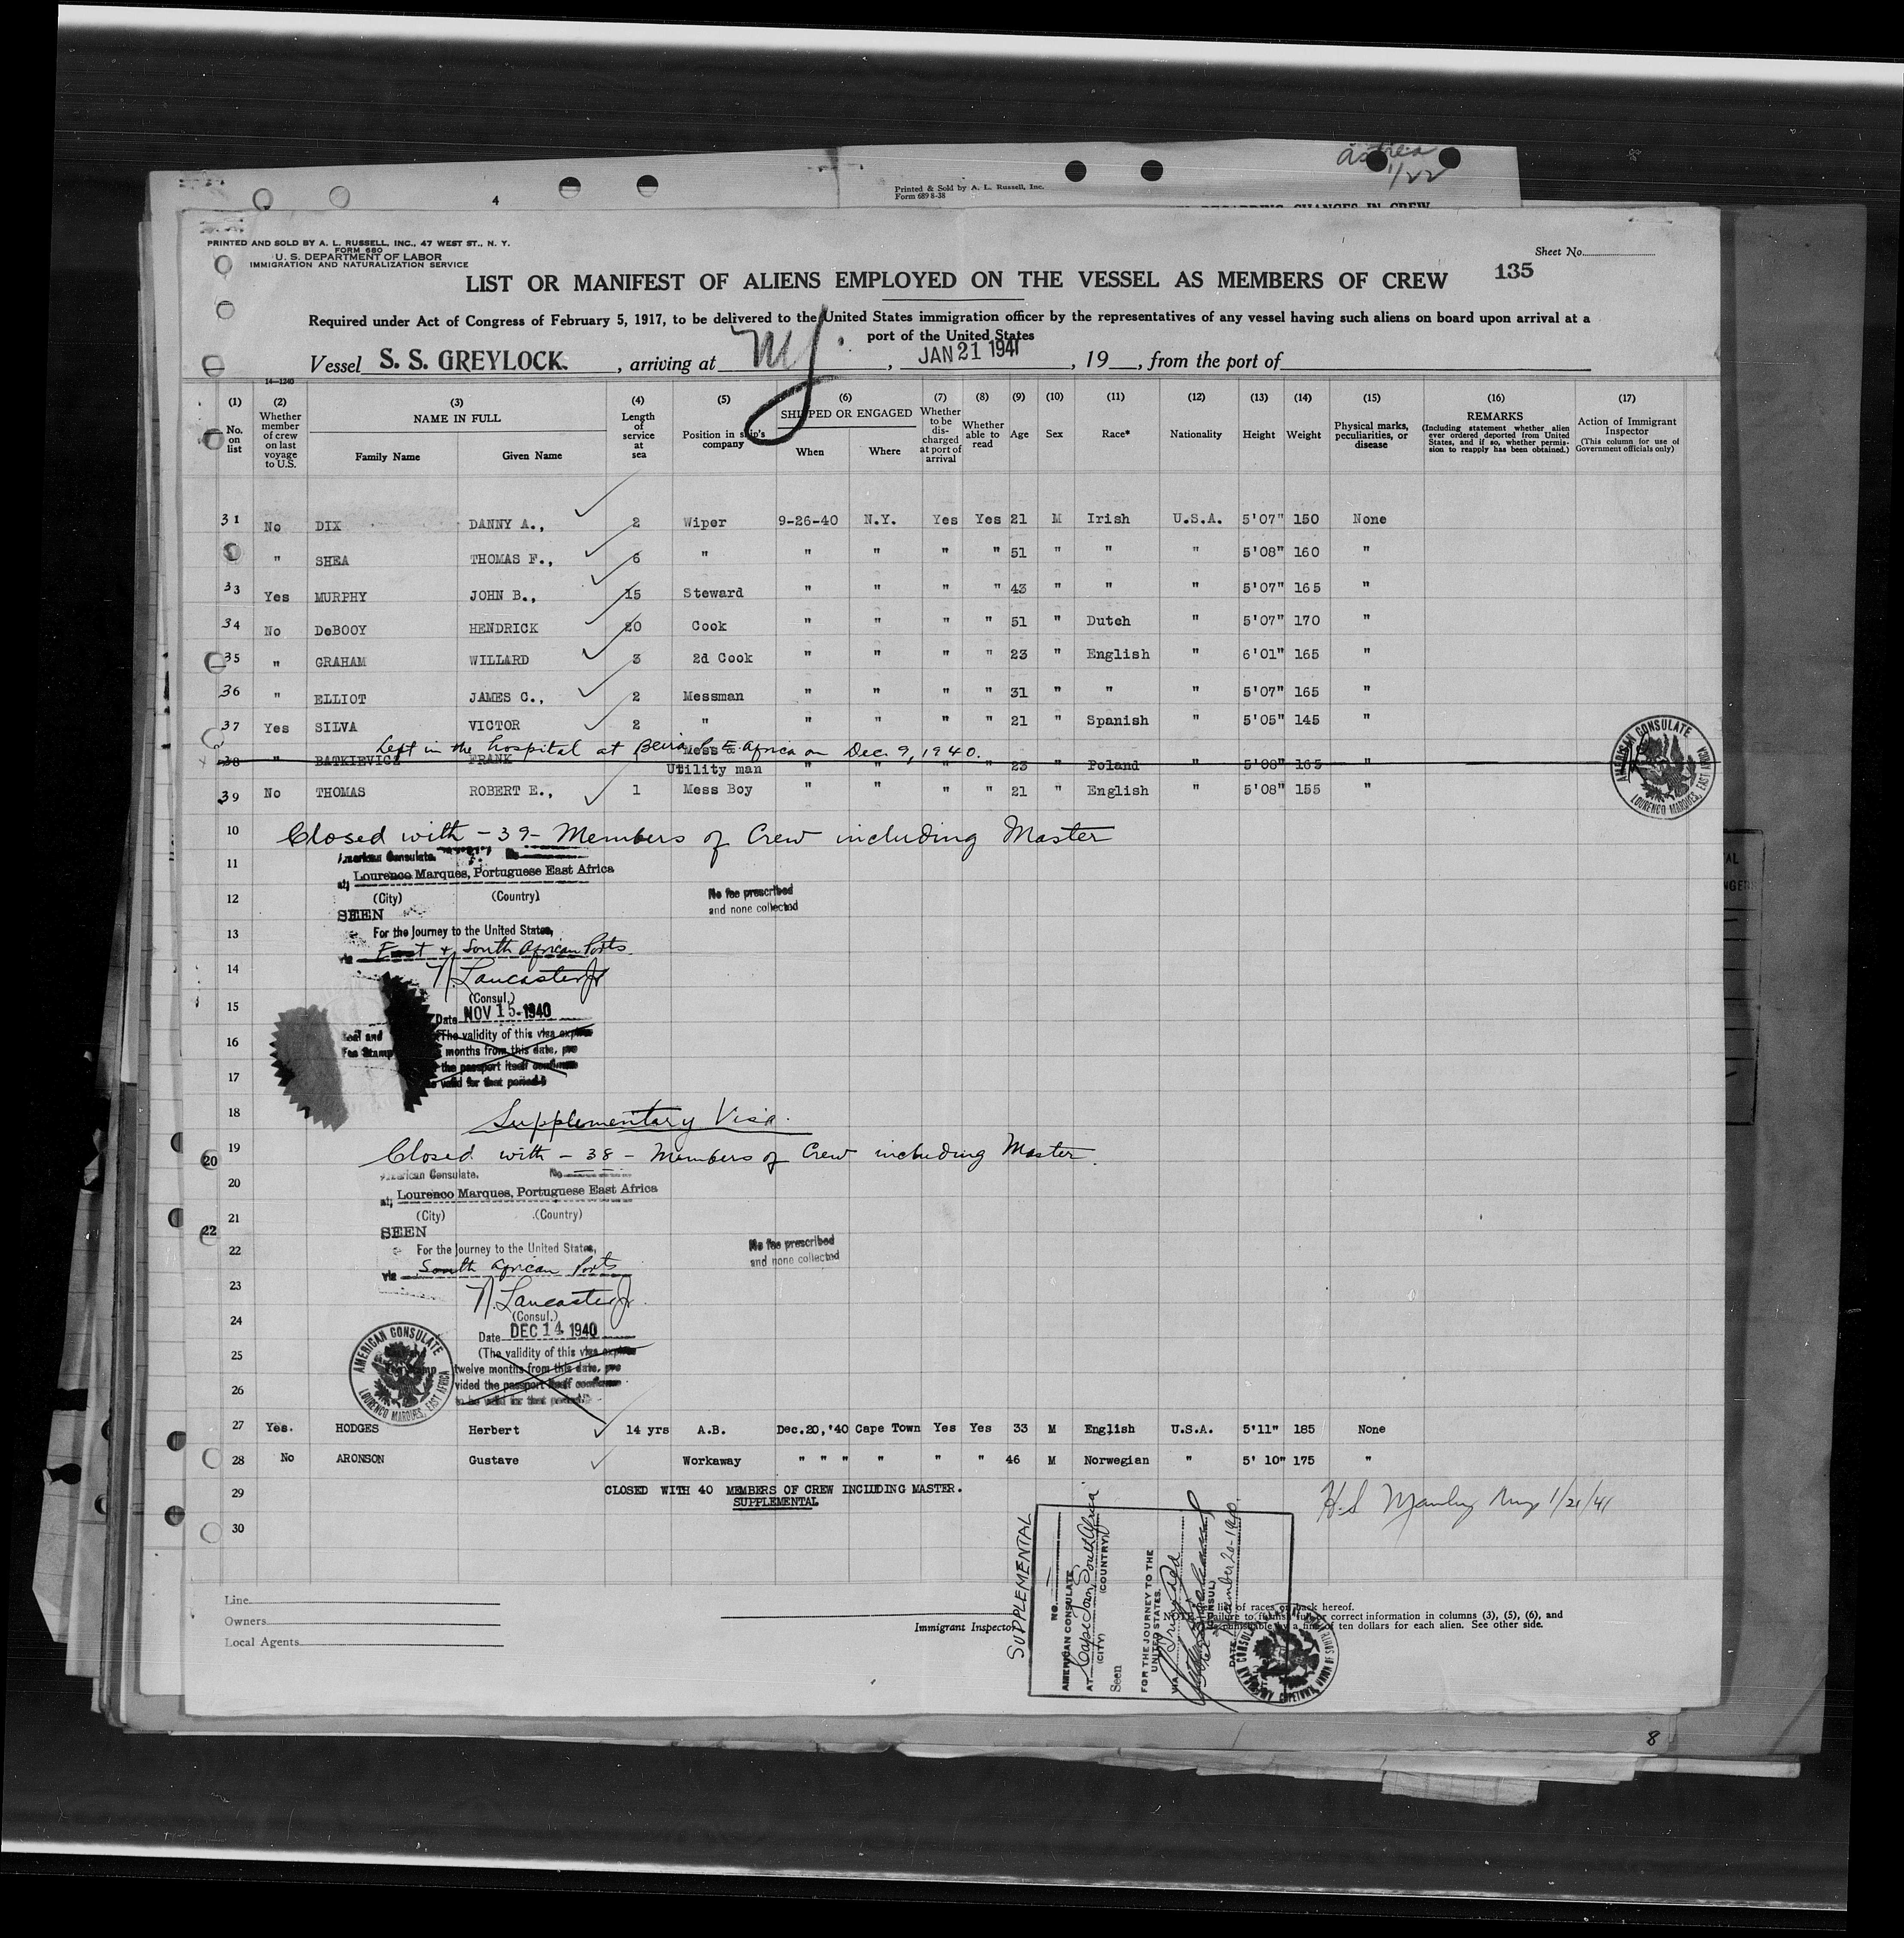 astrea
1/22
Printed & Sold by A. L. Russell, Inc.
Form 689 8-38
4
REGARDING CHANGES IN CREW
PRINTED AND SOLD BY A. L. RUSSELL, INC., 47 WEST ST., N. Y.
FORM 680
U. S. DEPARTMENT OF LABOR
IMMIGRATION AND NATURALIZATION SERVICE
Sheet No.
LIST OR MANIFEST OF ALIENS EMPLOYED ON THE VESSEL AS MEMBERS OF CREW 135
Required under Act of Congress of February 5, 1917, to be delivered to the United States immigration officer by the representatives of any vessel having such aliens on board upon arrival at a
port of the United States
Vessel S. S. GREYLOCK. , arriving at NY. , JAN 21 1941 , 19 , from the port of
14—1240
(1) (2) (3) (4) (5) (6) (7) (8) (9) (10) (11) (12) (13) (14) (15) (16) (17)
No. on list
Whether member of crew on last voyage to U.S.
NAME IN FULL
Family Name Given Name
Length of service at sea
Position in ship's company
SHIPPED OR ENGAGED
When Where
Whether to be discharged at port of arrival
Whether able to read
Age Sex Race* Nationality Height Weight
Physical marks, peculiarities, or disease
REMARKS
(Including statement whether alien ever ordered deported from United States, and if so, whether permission to reapply has been obtained.)
Action of Immigrant Inspector
(This column for use of Government officials only)
31 No DIX DANNY A., 2 Wiper 9-26-40 N.Y. Yes Yes 21 M Irish U.S.A. 5'07" 150 None
" SHEA THOMAS F., 6 " " " " " 51 " " " 5'08" 160 "
33 Yes MURPHY JOHN B., 15 Steward " " " " 43 " " " 5'07" 165 "
34 No DeBOOY HENDRICK 20 Cook " " " " 51 " Dutch " 5'07" 170 "
35 " GRAHAM WILLARD 3 2d Cook " " " " 23 " English " 6'01" 165 "
36 " ELLIOT JAMES C., 2 Messman " " " " 31 " " " 5'07" 165 "
37 Yes SILVA VICTOR 2 " " " " " 21 " Spanish " 5'05" 145 "
Left in the hospital at Beira P. E. Africa on Dec. 9, 1940.
38 " BATKIEVICZ FRANK Mess & Utility man " " " " 23 " Poland " 5'08" 165 "
39 No THOMAS ROBERT E., 1 Mess Boy " " " " 21 " English " 5'08" 155 "
AMERICAN CONSULATE
LOURENCO MARQUES, EAST AFRICA
10 Closed with - 39 - Members of Crew including Master
11 American Consulate. No
at Lourenco Marques, Portuguese East Africa
12 (City) (Country)
No fee prescribed
and none collected
SEEN
13 For the Journey to the United States,
via East & South African Ports.
14 N. Lancaster Jr
(Consul.)
15 Date NOV 15 1940
Seal and
Fee Stamp
16 (The validity of this visa expires
months from this date, pro
the passport itself continues
17 valid for that period.)
18 Supplementary Visa.
19 Closed with - 38 - Members of Crew including Master.
20
American Consulate. No
20 at Lourenco Marques, Portuguese East Africa
21 (City) (Country)
22
SEEN
22 For the Journey to the United States,
No fee prescribed
and none collected
via South African Ports
23 N. Lancaster Jr.
(Consul.)
24 Date DEC 14 1940
AMERICAN CONSULATE
LOURENCO MARQUES, EAST AFRICA
25 (The validity of this visa expires
twelve months from this date, pro
26 vided the passport itself continues
to be valid for that period.)
27 Yes. HODGES Herbert 14 yrs A.B. Dec.20,'40 Cape Town Yes Yes 33 M English U.S.A. 5'11" 185 None
28 No ARONSON Gustave Workaway " " " " " " 46 M Norwegian " 5' 10" 175 "
29 CLOSED WITH 40 MEMBERS OF CREW INCLUDING MASTER.
SUPPLEMENTAL
1/21/41
30
SUPPLEMENTAL
NO.
AMERICAN CONSULATE
AT Cape Town, South Africa
(CITY) (COUNTRY)
Seen
FOR THE JOURNEY TO THE
UNITED STATES.
VIA Trinidad
DATE
AMERICAN CONSULATE
CAPETOWN, UNION OF SOUTH
Line
Owners
Local Agents
Immigrant Inspector
list of races on back hereof.
NOTE.—Failure to furnish full or correct information in columns (3), (5), (6), and
is punishable by a fine of ten dollars for each alien. See other side.
8